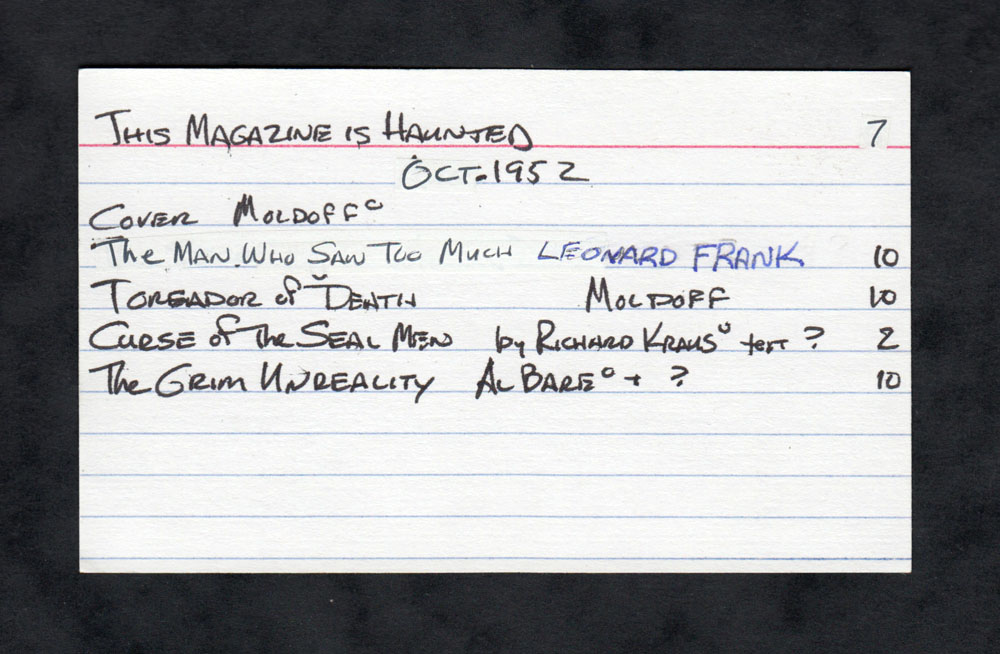 THIS MAGAZINE IS HAUNTED 7
OCT. 1952
COVER MOLDOFF°
The MAN WHO SAW TOO MUCH LEONARD FRANK 10
TOREADOR of DEATH MOLDOFF 10
CURSE OF The SEAL MEN by RICHARD KRAUS text ? 2
The GRIM UNREALITY AL BARE° + ? 10